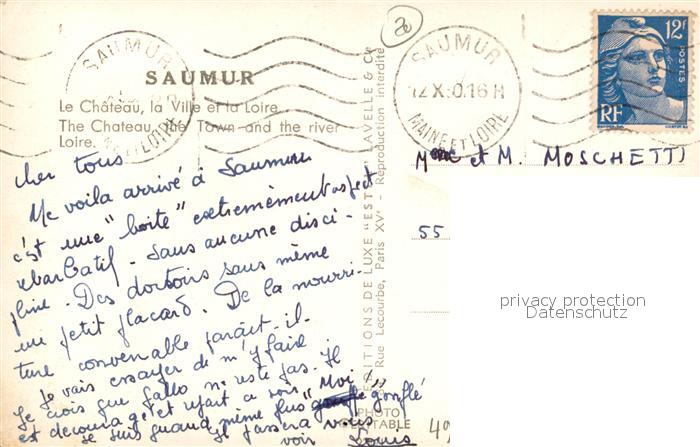 SAUMUR
12 X 0.16 H
MAINE ET LOIRE
12F
POSTES
RF
SAUMUR
Le Château, la Ville et la Loire.
The Chateau, the Town and the river
Loire.
EDITIONS DE LUXE "EST LAVELLE & Cie
Rue Lecourbe, Paris XVe - Reproduction interdite
PHOTO
TABLE
Mme et M. MOSCHETTI
55
cher tous
Me voila arrivé à Saumur
c'est une "boite" extremement aspect
rebarbatif. Sans aucune disci-
pline. Des dortoirs sans même
un petit placard. De la nourri-
ture convenable parait-il.
Je vais essayer de m'y faire
Je crois que Gallo ne reste pas. Il
est decouragé et
je suis quand même plus gonflé
"Moi"
Il passera vous
voir Louis
49
privacy protection
Datenschutz